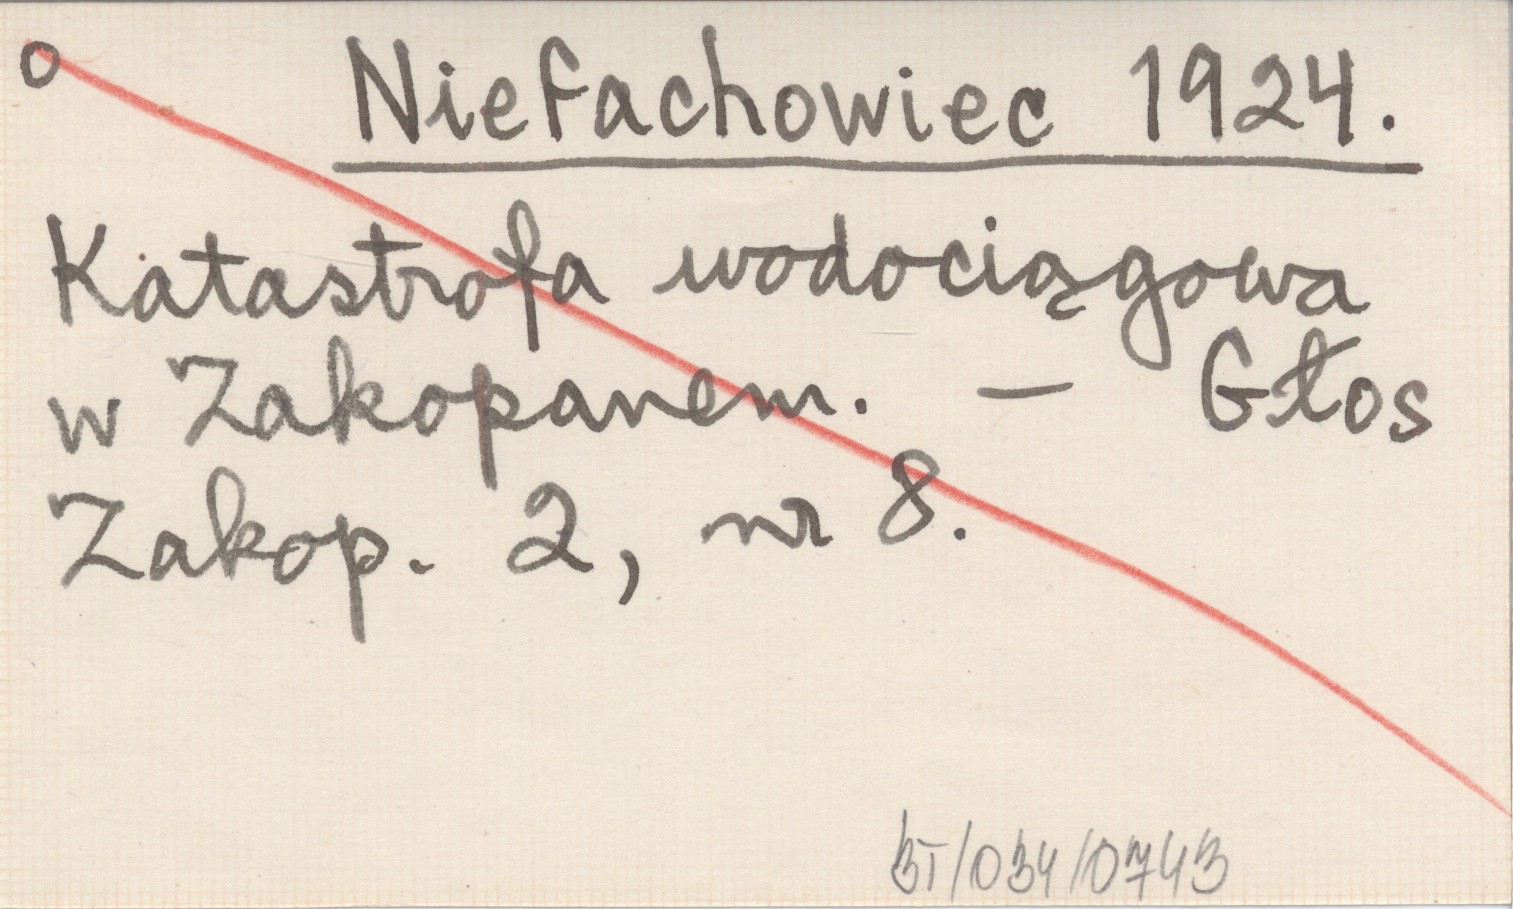 o Niefachowiec 1924.
Katastrofa wodociągowa
w Zakopanem. — Głos
Zakop. 2, nr 8.
BT/034/0743